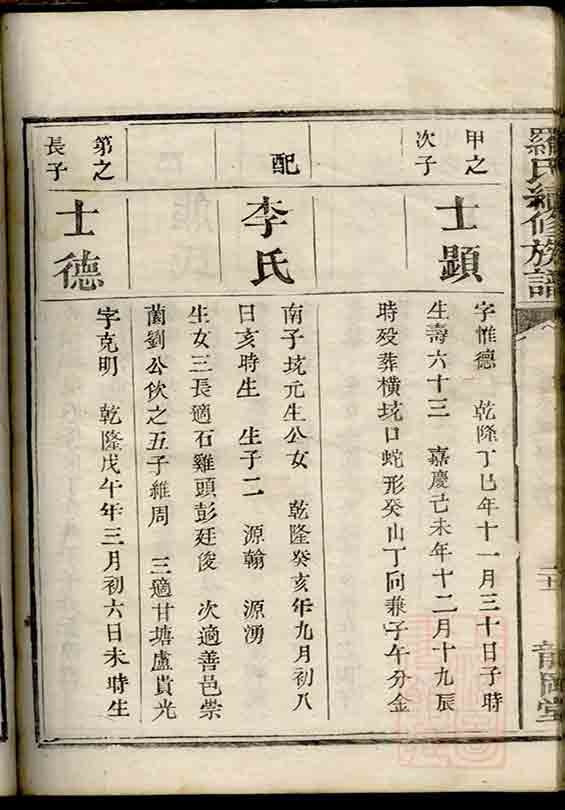 羅氏續修族譜
龍岡堂
甲之
次子
士顕
字惟德 乾隆丁巳年十一月三十日子時
生壽六十三 嘉慶己未年十二月十九辰
時殁葬横坑口蛇形癸山丁向兼子午分金
配
李氏
南子坑元生公女 乾隆癸亥年九月初八
日亥時生 生子二 源翰 源湧
生女三長適石雞頭彭廷俊 次適善邑崇
薗劉公伙之五子維周 三適甘塘盧貴光
第之
長子
士德
字克明 乾隆戊午年三月初六日未時生